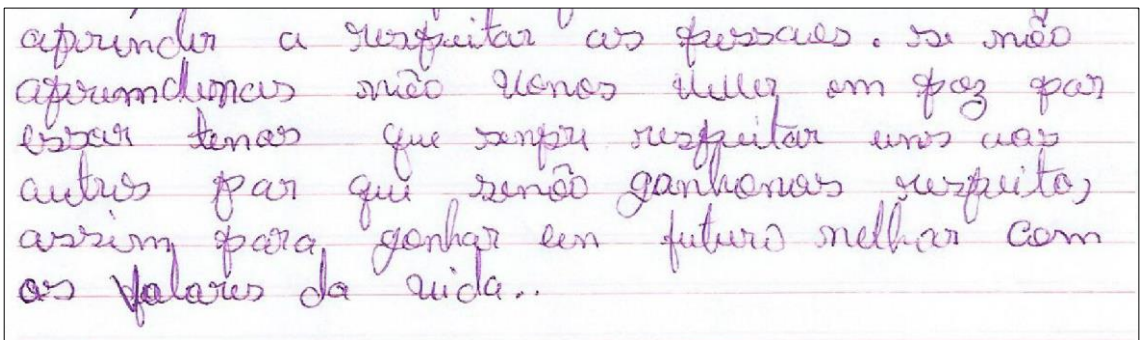 aprender a respeitar as pessoas. se não
aprendemos não vamos viver em paz por
essar temos que sempre respeitar uns aos
outros por que senão ganhamos respeito,
assim para ganhar um futuro melhor com
os valores da vida..